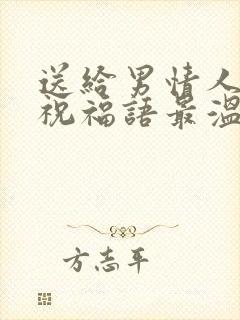 送給男情人
祝福語最溫
方志平